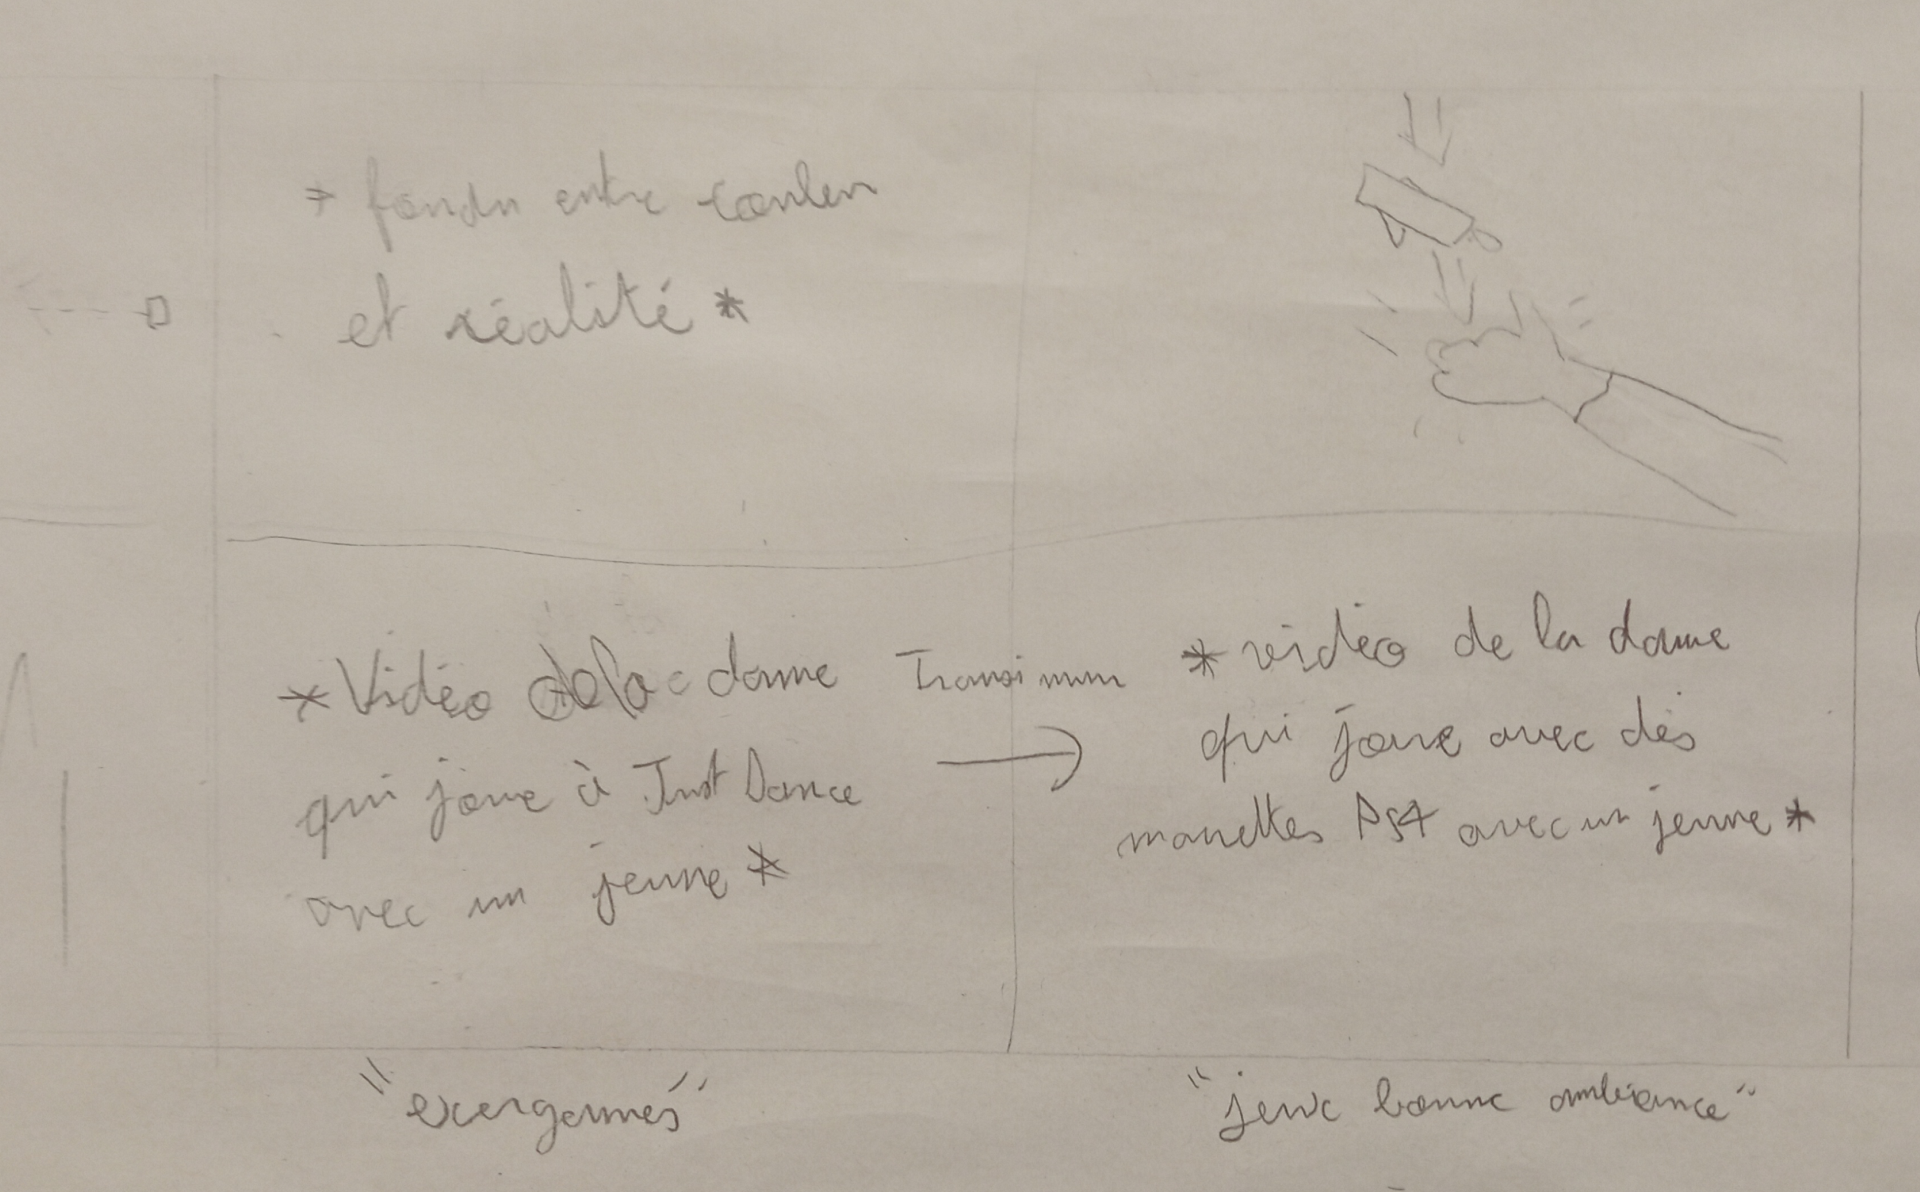 * fondu entre couleur
et réalité *
* Vidéo de la dame
qui joue à Just Dance
avec un jeune *
* vidéo de la dame
qui joue avec des
manettes PS4 avec un jeune *
"exergames"
"jeux bonne ambiance"